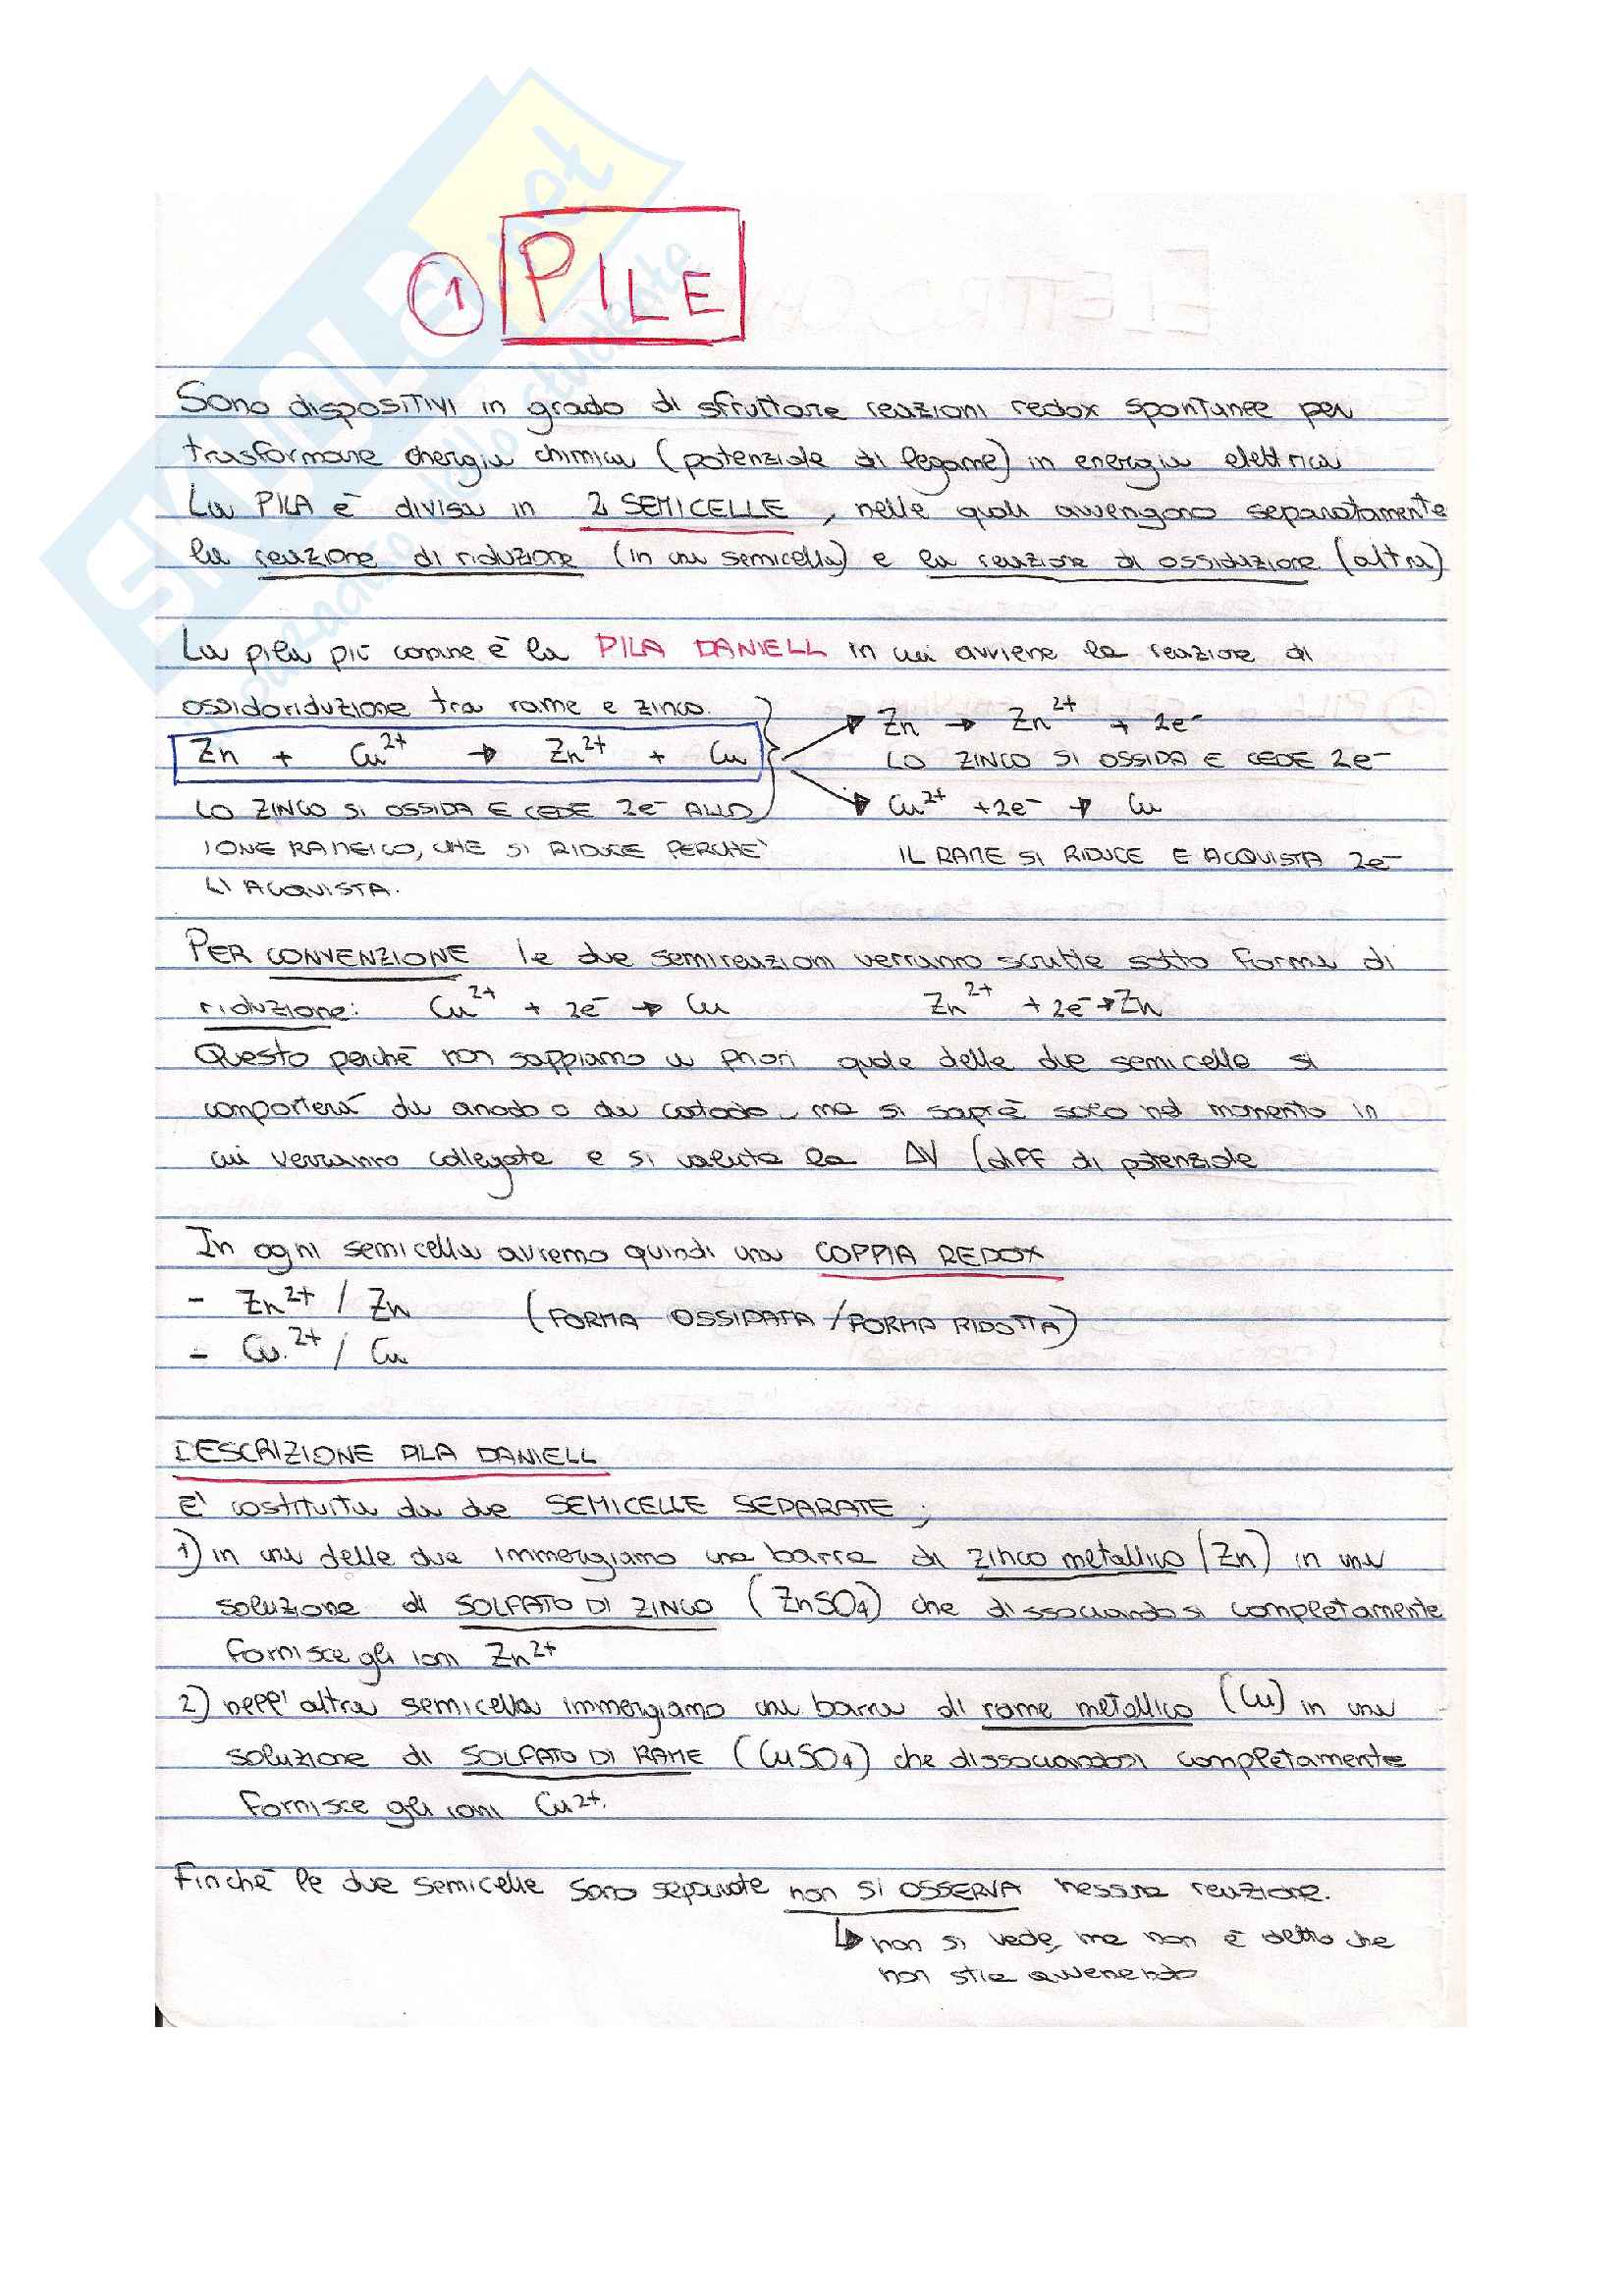 ① PILE
Sono dispositivi in grado di sfruttare reazioni redox spontanee per
trasformare energia chimica (potenziale di legame) in energia elettrica
La PILA è divisa in 2 SEMICELLE, nelle quali avvengono separatamente
la reazione di riduzione (in una semicella) e la reazione di ossidazione (altra)
La pila più comune è la PILA DANIELL in cui avviene la reazione di
ossidoriduzione tra rame e zinco.
Zn → Zn²⁺ + 2e⁻
Zn + Cu²⁺ → Zn²⁺ + Cu
LO ZINCO SI OSSIDA E CEDE 2e⁻
LO ZINCO SI OSSIDA E CEDE 2e⁻ ALLO
Cu²⁺ +2e⁻ → Cu
IONE RAMEICO, CHE SI RIDUCE PERCHE'
IL RAME SI RIDUCE E ACQUISTA 2e⁻
LI ACQUISTA.
PER CONVENZIONE le due semireazioni verranno scritte sotto forma di
riduzione: Cu²⁺ + 2e⁻ → Cu Zn²⁺ + 2e⁻→Zn
Questo perchè non sappiamo a priori quale delle due semicelle si
comporterà da anodo o da catodo, ma si saprà solo nel momento in
cui verranno collegate e si valuta la ΔV (diff di potenziale
In ogni semicella avremo quindi una COPPIA REDOX
- Zn²⁺ / Zn (FORMA OSSIDATA / FORMA RIDOTTA)
- Cu²⁺ / Cu
DESCRIZIONE PILA DANIELL
E' costituita da due SEMICELLE SEPARATE;
1) in una delle due immergiamo una barra di zinco metallico (Zn) in una
soluzione di SOLFATO DI ZINCO (ZnSO₄) che dissociandosi completamente
fornisce gli ioni Zn²⁺
2) nell'altra semicella immergiamo una barra di rame metallico (Cu) in una
soluzione di SOLFATO DI RAME (CuSO₄) che dissociandosi completamente
fornisce gli ioni Cu²⁺.
Finchè le due semicelle sono separate non si OSSERVA nessuna reazione.
↳ non si vede, ma non è detto che
non stia avvenendo
SKUOLA.net
paradiso dello studente